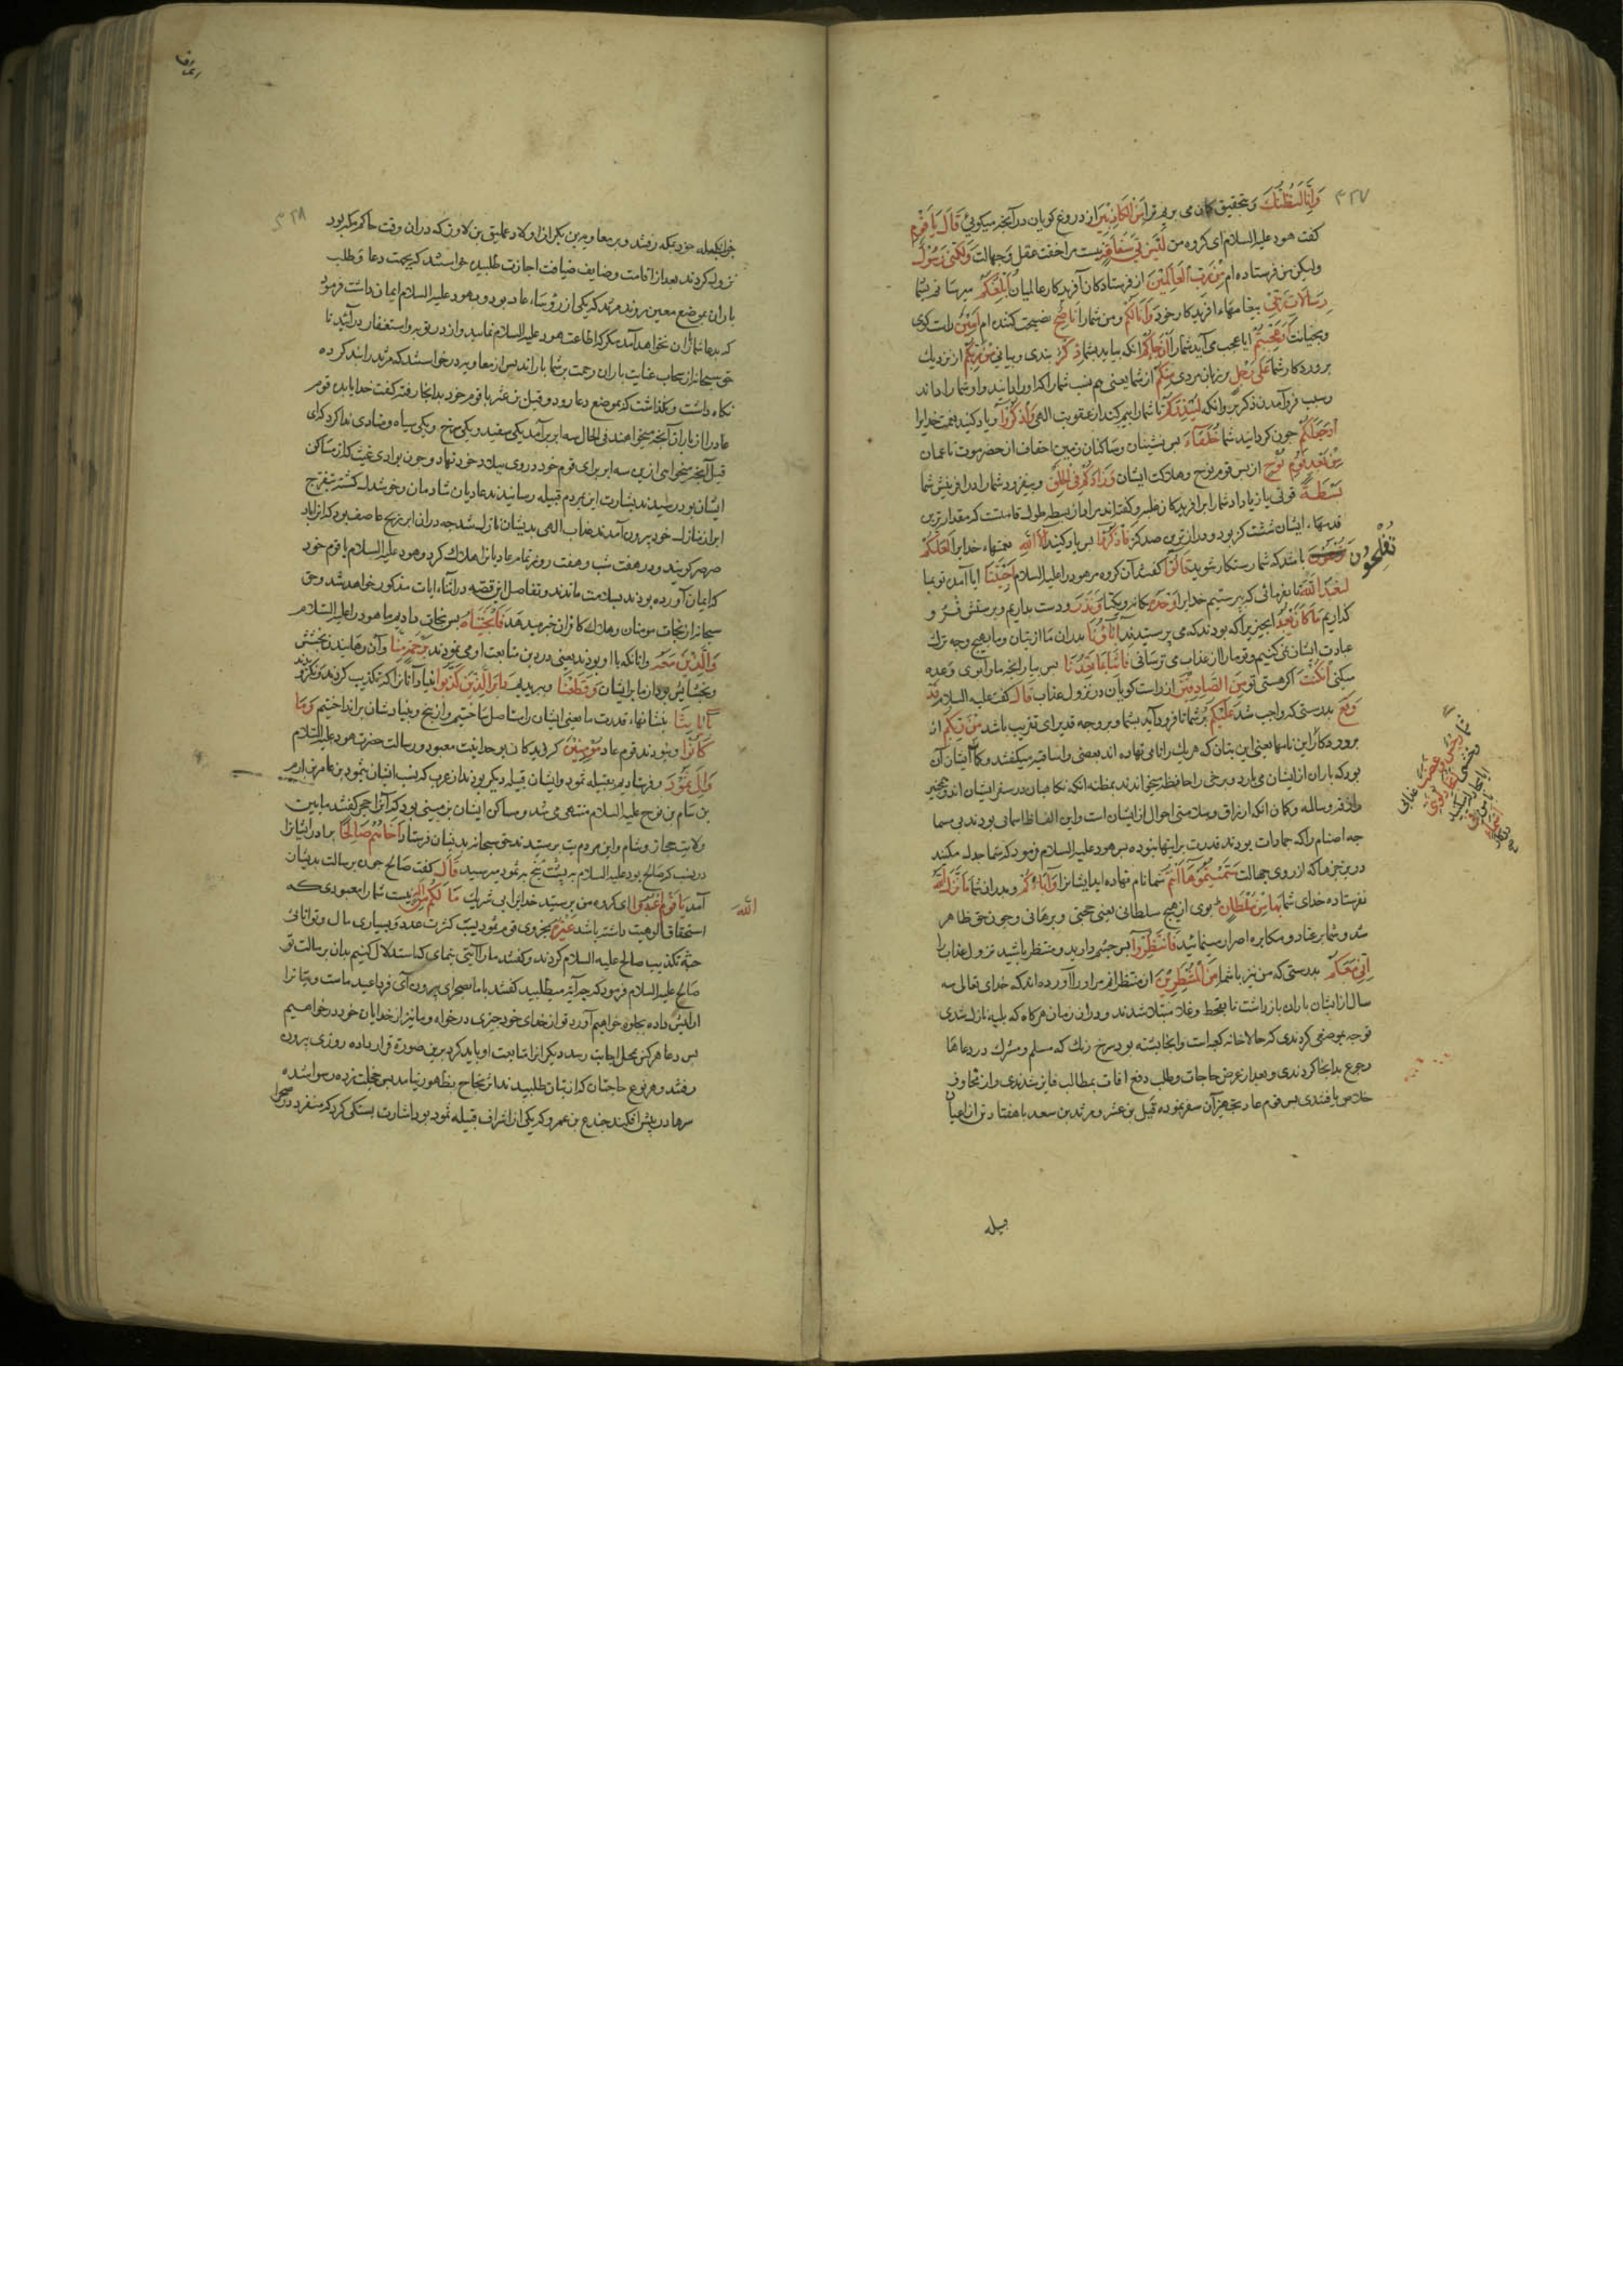 ۴۲۷
وَإِنَّا لَنَظُنُّكَ و بتحقیق کمان می بریم ترا مِنَ الْكَاذِبِينَ از دروغ کویان در آنچه میکویی قَالَ يَا قَوْمِ
کفت هود علیه السلام ای کروه من لَيْسَ بِي سَفَاهَةٌ نیست مرا خفت عقل و جهالت وَلَكِنِّي رَسُولٌ
ولیکن من فرستاده ام مِنْ رَبِّ الْعَالَمِينَ از فرستادکان آفریدکار عالمیان أُبَلِّغُكُمْ میرسانم بشما
رِسَالَاتِ رَبِّي پیغامهاء آفریدکار خود وَأَنَا لَكُمْ و من شما را نَاصِحٌ نصیحت کننده ام أَمِينٌ راست کوی
و بخیانت أَوَعَجِبْتُمْ ایا عجب می آید شما را أَنْ جَاءَكُمْ انکه بیاید بشما ذِكْرٌ بندی و بیانی مِنْ رَبِّكُمْ از نزدیک
بروردکار شما عَلَى رَجُلٍ بر زبان مردی مِنْكُمْ از شما یعنی هم نسب شما را که او را دانید و او شما را داند
و سبب فرو آمدن ذکر بر وانکه لِيُنْذِرَكُمْ تا شما را بیم کند از عقوبت الهی وَاذْكُرُوا و یاد کنید نعمت خدایرا
إِذْ جَعَلَكُمْ چون کردانید شما خُلَفَاءَ پس نشینان و ساکنان زمین احقاف از حضرموت تا عمان
مِنْ بَعْدِ قَوْمِ نُوحٍ از پس قوم نوح و هلاکت ایشان وَزَادَكُمْ فِي الْخَلْقِ و بیفزود شما را در افرینش شما
بَسْطَةً قوتی یا زیاد داد شما را
قدمهاء ایشان شصت کز بود و درازترین صد کز فَاذْكُرُوا پس یاد کنید آلَاءَ اللَّهِ نعمتهاء خدایرا لَعَلَّكُمْ
تُفْلِحُونَ باشد که شما رستکار شوید قَالُوا کفتند آن کروه مر هود را علیه السلام أَجِئْتَنَا ایا آمدی تو بما
لِنَعْبُدَ اللَّهَ تا بفرمائی که بپرستیم خدایرا وَحْدَهُ یکانه و یکتا وَنَذَرَ و دست بداریم
کذاریم مَا كَانَ يَعْبُدُ انچیز را که بودند که می پرستیدند آبَاؤُنَا پدران ما از بتان و ما بهیچ وجه ترک
عبادت ایشان نمی کنیم و تو ما را از عذاب می ترسانی فَأْتِنَا بِمَا تَعِدُنَا پس بیار انچه ما را بوی وعده
میکنی إِنْ كُنْتَ اکر هستی تو مِنَ الصَّادِقِينَ از راست کویان در نزول عذاب قَالَ کفت علیه السلام قَدْ
وَقَعَ بدرستی که واجب شد عَلَيْكُمْ بر شما تا فرود آید بشما و بر وجه قدیر ای تقریب باشد مِنْ رَبِّكُمْ از
بروردکار این نامها یعنی این بتان که هر یک را نامی نهاده اند بعضی را ساقیه میکفتند و کمان ایشان آن
بود که باران از ایشان می بارد و برخی را حافظه میخواندند بمظنه انکه نکاهبان در سفر ایشان اند
رازقه و سالمه و کمان انکه ارزاق و سلامتی احوال از ایشان است و این الفاظ اسمائی بودند بی مسما
چه اصنام را که جمادات بودند قدرت بر اینها نبوده پس هود علیه السلام فرمود که شما جدل میکنید
در چیزها که از روی جهالت سَمَّيْتُمُوهَا أَنْتُمْ شما نام نهاده اید ایشانرا وَآبَاؤُكُمْ و پدران شما مَا نَزَّلَ اللَّهُ
نفرستاده خدای شما بِهَا مِنْ سُلْطَانٍ بوی از هیچ سلطانی یعنی حجتی و برهانی و چون حق ظاهر
شد و شما بر عناد و مکابره اصرار مینمائید فَانْتَظِرُوا پس چشم دارید و منتظر باشید نزول عذاب را
إِنِّي مَعَكُمْ بدرستی که من نیز با شما مِنَ الْمُنْتَظِرِينَ از منتظرانم مر او را آورده اند که خدای تعالی سه
سال از ایشان باران باز داشت تا بقحط و غلا مبتلا شدند و در ان زمان هرکاه که بلیه نازل شدی
توجه بموضعی کردندی که حالا خانه کعبه است و انجا پشته بود سرخ رنک که مسلم و مشرک در دعاها
رجوع بدانجا کردندی و بعد از عرض حاجات و طلب دفع افات بمطالب فایز شدندی و از مخاوف
خلاص یافتندی پس قوم عاد تجهیز آن سفر نموده قیل بن عنز و مرثد بن سعد با هفتاد تن از اعیان
قبیله
۴۲۸
بمکه رفتند و بر معاویه بن بکر از اولاد عملیق بن لاوز که در ان وقت حاکم مکه بود
نزول کردند بعد از اقامت وضایف ضیافت اجازت طلبیده خواستند که بجهت دعا و طلب
باران بموضع معین روند مرثد که یکی از رؤساء عاد بود و بهود علیه السلام ایمان داشت فرمود
که بدعا شما باران نخواهد آمد مکر که اطاعت هود علیه السلام نمایید و از در توبه و استغفار در آئید تا
حق سبحانه از سحاب عنایت باران رحمت بر شما باراند پس از معاویه درخواستند که مرثد را بند کرده
نکاه داشت و نکذاشت که بموضع دعا رود و قیل بن عنز با قوم خود بدانجا رفته کفت خدایا بده قوم
عاد را از باران آنچه میخواهند فی الحال سه ابر برآمد یکی سفید و یکی سرخ و یکی سیاه و منادی ندا کرد که ای
قیل اختیار کن سحابی از این سه ابر برای قوم خود
ایشان بود رسیدند بشارت این بمردم قبیله رسانیدند عادیان شادمان و خوشدل کشته بتفرج
ابر از منازل خود بیرون آمدند عذاب الهی بدیشان نازل شد چه در ان ابر ریح عاصف بود که انرا باد
صرصر کویند و در هفت شب و هفت روز تمام عادیانرا هلاک کرد و هود علیه السلام با قوم خود
که ایمان آورده بودند بسلامت ماندند و تفاصیل این قصه در اثناء ایات مذکور خواهد شد و حق
سبحانه از نجات مومنان و هلاک کافران خبر میدهد فَأَنْجَيْنَاهُ پس نجات دادیم ما هود را علیه السلام
وَالَّذِينَ مَعَهُ وانانکه با او بودند یعنی در دین متابعت او می نمودند بِرَحْمَةٍ مِنَّا و آن رهانیدن بخشش
و بخشایش بود از ما بر ایشان وَقَطَعْنَا و ببریدیم دَابِرَ الَّذِينَ كَذَّبُوا بنیاد آنانرا که تکذیب کردند
بِآيَاتِنَا بنشانهاء قدرت ما یعنی ایشان را مستاصل ساختیم و از بیخ و بنیادشان برانداختیم وَمَا
كَانُوا و نبودند قوم عاد مُؤْمِنِينَ کرویدکان بوحدانیت معبود و رسالت حضرت هود علیه السلام
وَإِلَى ثَمُودَ و فرستادیم بقبیله ثمود و ایشان قبیله دیکر بودند از عرب که نسب ایشان بثمود بن عامر بن ارم
بن سام بن نوح علیه السلام منتهی می شد و مساکن ایشان زمینی بود که آنرا حجر کفتند مابین
ولایت حجاز و شام و این مردم بت پرستیدند حق سبحانه بدیشان فرستاد أَخَاهُمْ صَالِحًا برادر ایشانرا
در نسب که صالح بود علیه السلام به پشت پنج بثمود میرسید قَالَ کفت صالح چون برسالت بدیشان
آمد يَا قَوْمِ اعْبُدُوا ای کروه من بپرستید خدایرا بی شریک مَا لَكُمْ مِنْ إِلَهٍ نیست شما را معبودی که
اللَّهَ
استحقاق الوهیت داشته باشد غَيْرُهُ بجز وی قوم ثمود بسبب کثرت عدد و بسیاری مال و توانائی
جثه تکذیب صالح علیه السلام کردند و کفتند ما را آیتی بنمای که استدلال کنیم بدان برسالت تو
صالح علیه السلام فرمود که چه آیة میطلبید کفتند با ما بصحرای بیرون آی فردا عید ماست و بتانرا
ارایش داده بجلوه خواهیم آورد تو از خدای خود چیزی درخواه و ما نیز از خدایان خود درخواهیم
پس دعا هر کس بمحل اجابت رسد دیکر انرا متابعت او باید کرد برین صورة قرار داده روزی بیرون
رفتند و هر نوع حاجتان که از بتان طلبیدند اثر نجاح بظهور نیامد پس خجلت زده رسوا شده
سرها در پیش افکندند جندع بن عمرو که یکی از اشراف قبیله ثمود بود اشارت بسنکی کرد که منفرد در صحرا